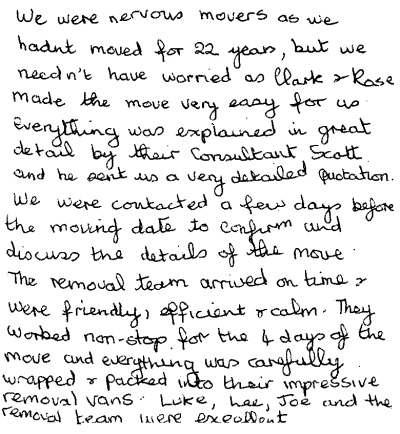 We were nervous movers as we
hadnt moved for 22 years, but we
needn't have worried as Clark & Rose
made the move very easy for us
Everything was explained in great
detail by their Consultant Scott
and he sent us a very detailed quotation.
We were contacted a few days before
the moving date to confirm and
discuss the details of the move.
The removal team arrived on time &
were friendly, efficient & calm. They
worked non-stop for the 4 days of the
move and everything was carefully
wrapped & packed into their impressive
removal vans. Luke, Lee, Joe and the
removal team were excellent